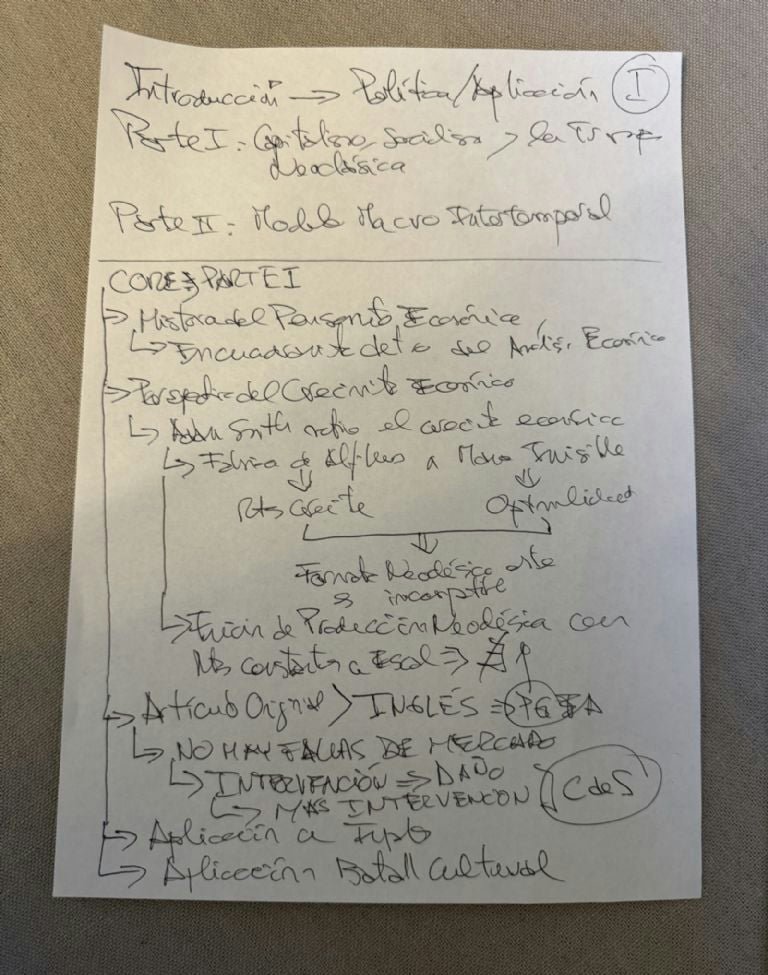 Introducción → Política/Aplicación I
Parte I: Capitalismo, Socialismo y la Trampa
Neoclásica
Parte II: Modelo Macro Intertemporal
CORE PARTE I
→ Historia del Económico
↳ del Análisis Económico
→ Perspectiva del Crecimiento Económico
↳ Adam Smith el económico
↳ Fábrica de Alfileres a Mano Invisible
⇓ ⇓
Rtos Creciente Optimalidad
⇓
Neoclásico este
es
↳ Función de Producción Neoclásica con
a Escala ⇒
→ Artículo Original > INGLÉS ⇒
↳ NO HAY FALLAS DE MERCADO
↳ INTERVENCIÓN ⇒ DAÑO
↳ MAS INTERVENCION CdeS
↳ Aplicación a
↳ Aplicación Batall Cultural